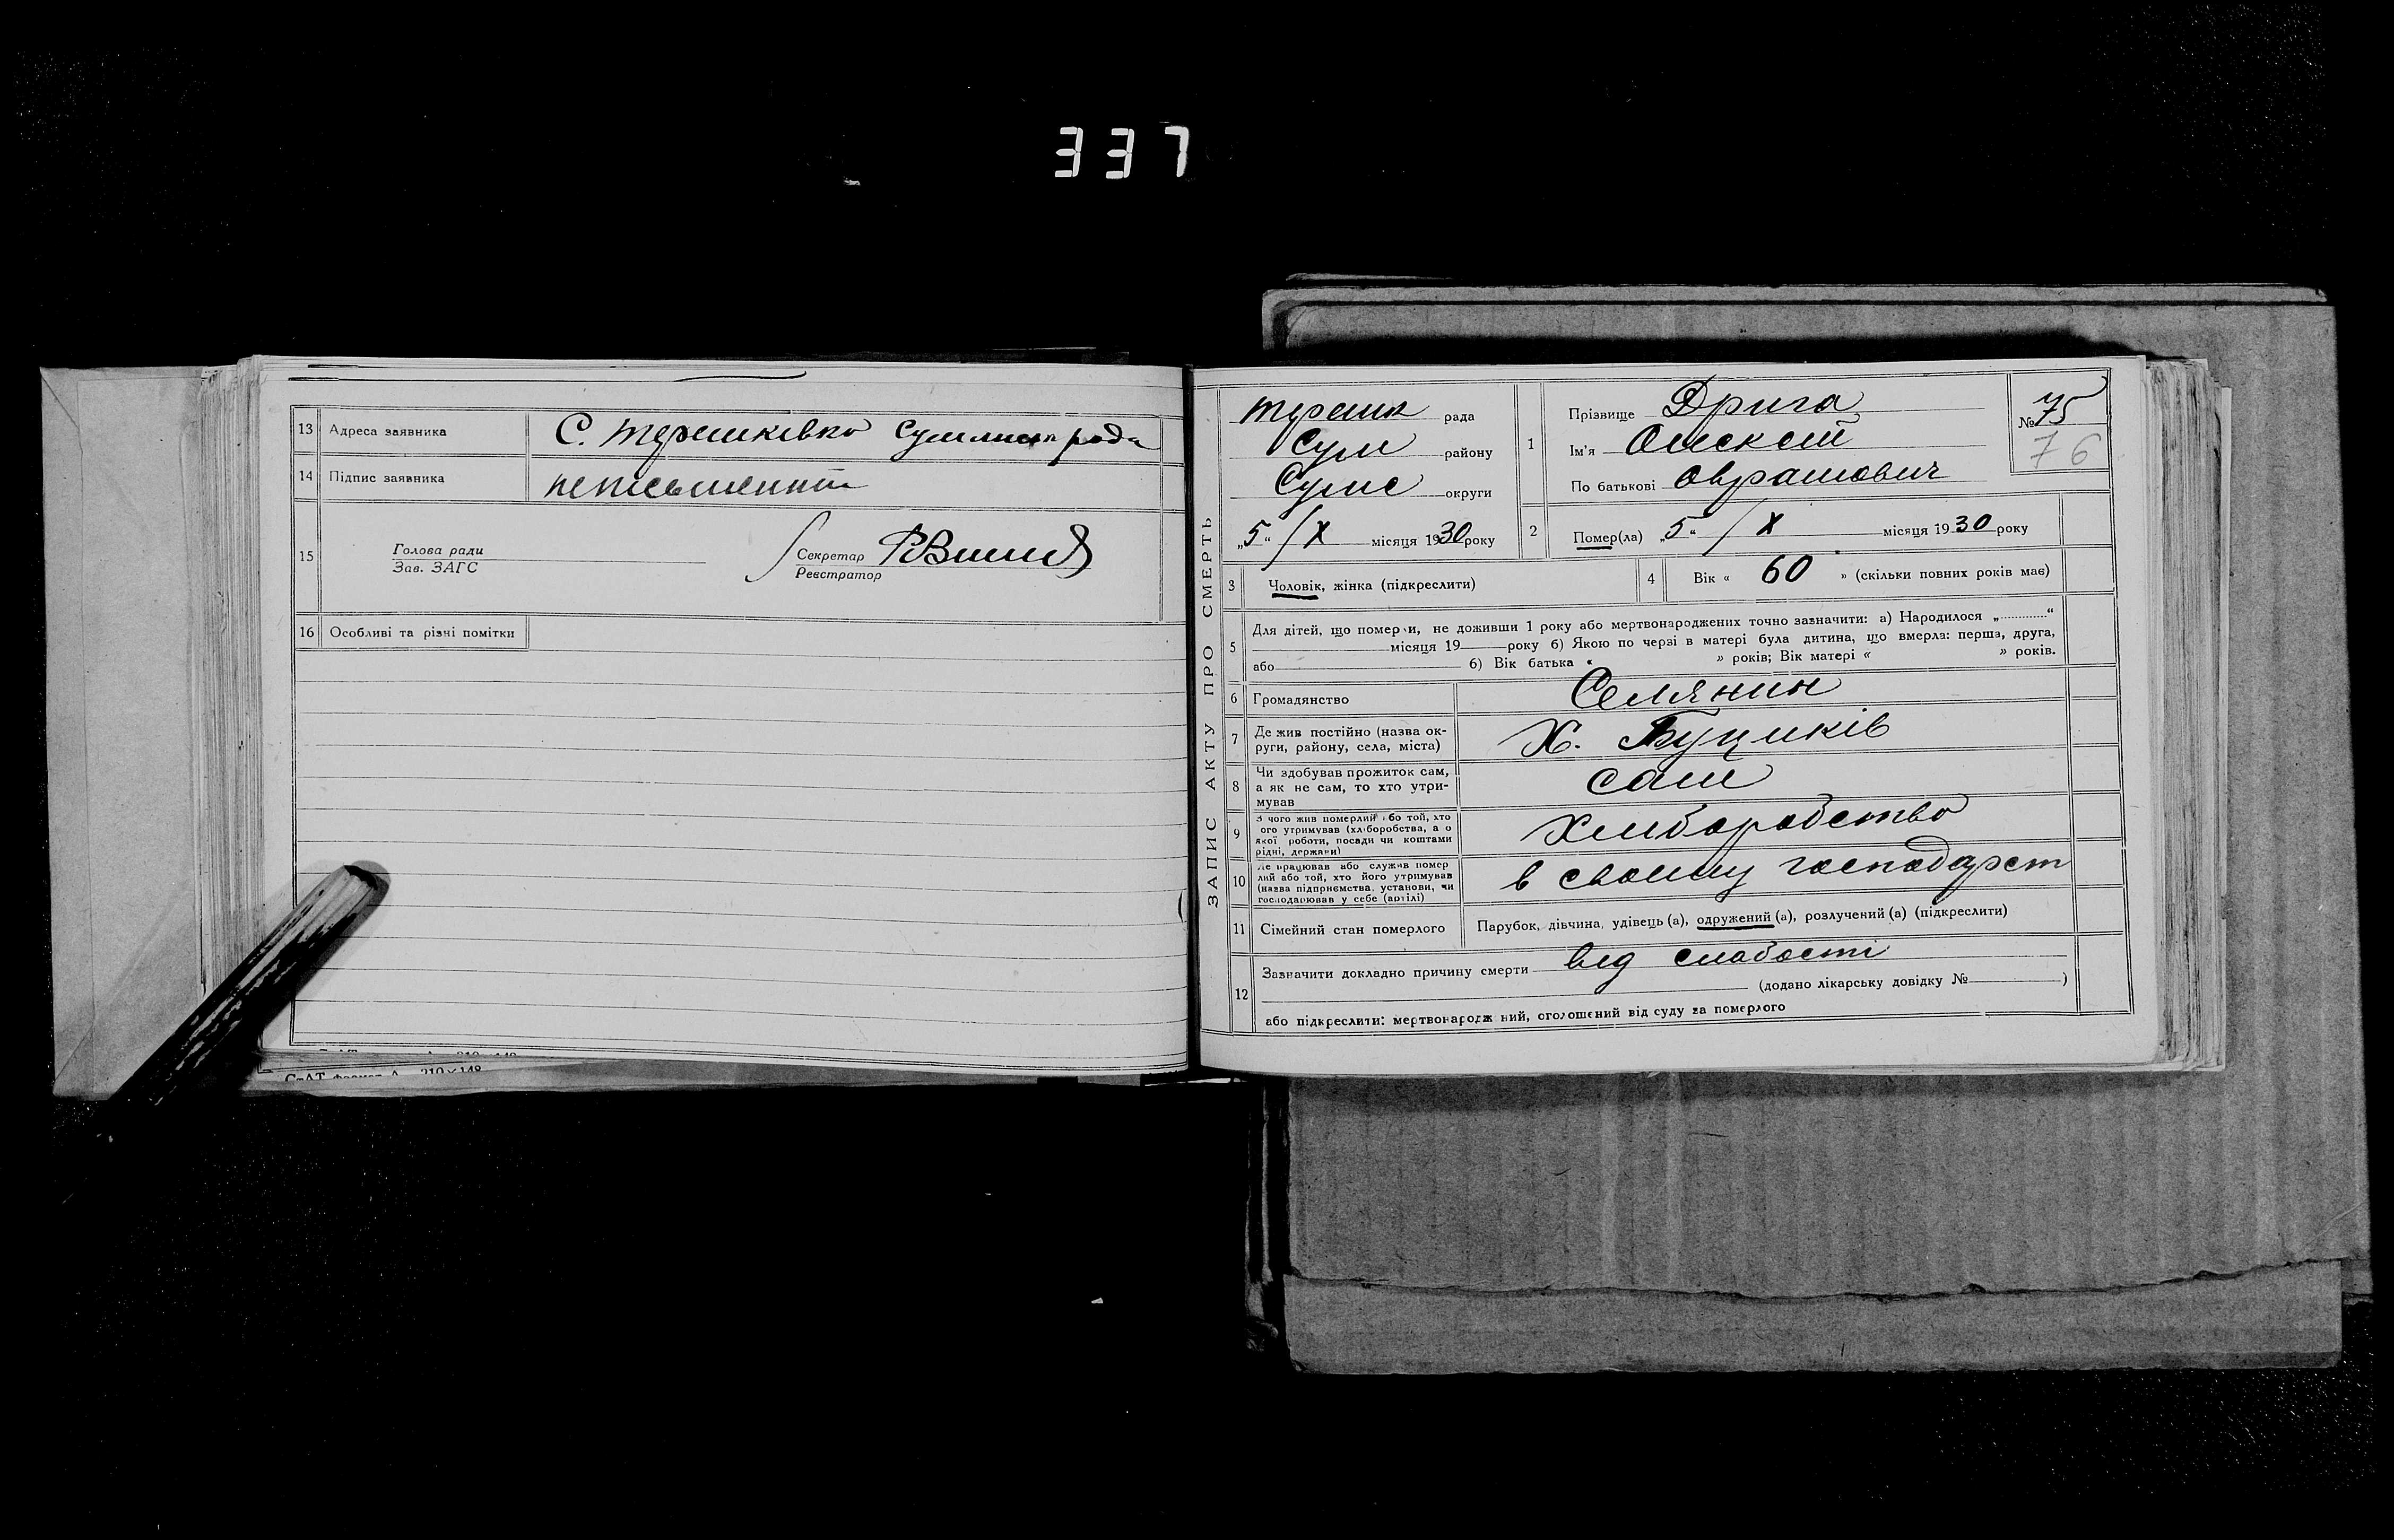 337
13 Адреса заявника С. Терешківка Сум рада
14 Підпис заявника неписьменний
15 Голова ради
Зав. ЗАГС
Секретар
Реєстратор
16 Особливі та різні помітки
ЗАПИС АКТУ ПРО СМЕРТЬ
Терешк рада
Сум району
Сумс округи
„5“ / X місяця 1930 року
1 Прізвище Дрига
Ім'я Олексій
По батькові Оврамович
№ 75
76
2 Помер(ла) „5“ / X місяця 1930 року
3 Чоловік, жінка (підкреслити)
4 Вік « 60 » (скільки повних років має)
5 Для дітей, що померли, не доживши 1 року або мертвонароджених точно зазначити: а) Народилося „ “
місяця 19 року б) Якою по черзі в матері була дитина, що вмерла: перша, друга,
або б) Вік батька « » років; Вік матері « » років.
6 Громадянство Селянин
7 Де жив постійно (назва ок-
руги, району, села, міста) Х. Буциків
8 Чи здобував прожиток сам,
а як не сам, то хто утри-
мував сам
9 З чого жив померлий або той, хто
ого утримував (хліборобства, а о
якої роботи, посади чи коштами
рідні, держави) Хліборобство
10 Де працював або служив помер
лий або той, хто його утримував
(назва підприємства, установи, чи
господарював у себе (артілі) в своєму господарст
11 Сімейний стан померлого Парубок, дівчина, удівець (а), одружений (а), розлучений (а) (підкреслити)
12 Зазначити докладно причину смерти від слабости
(додано лікарську довідку № )
або підкреслити: мертвонародж ний, оголошений від суду за померлого